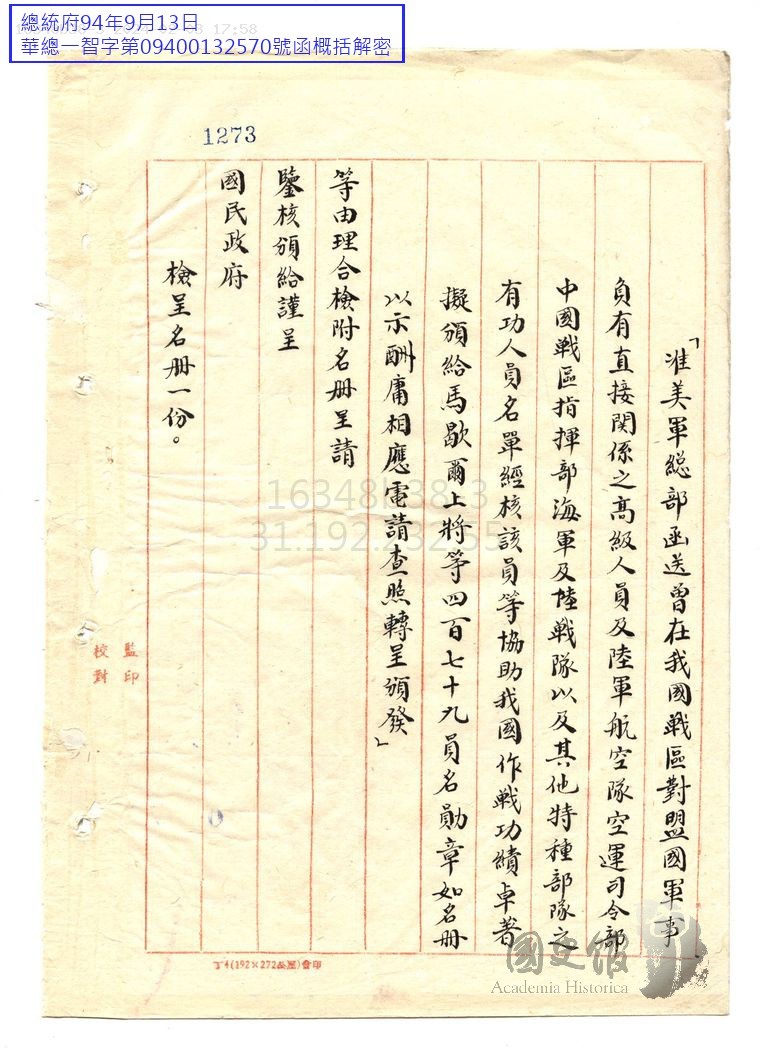 總統府94年9月13日
華總一智字第09400132570號函概括解密
1273
「准美軍總部函送曾在我國戰區對盟國軍事
負有直接関係之高級人員及陸軍航空隊空運司令部
中國戰區指揮部海軍及陸戰隊以及其他特種部隊之
有功人員名單經核該員等協助我國作戰功績卓著
擬頒給馬歇爾上將等四百七十九員名勛章如名册
以示酬庸相應電請查照轉呈頒發」
等由理合檢附名册呈請
鑒核頒給謹呈
國民政府
檢呈名册一份。
監印
校對
16348b38-3
31.192.232.55
國史館
Academia Historica